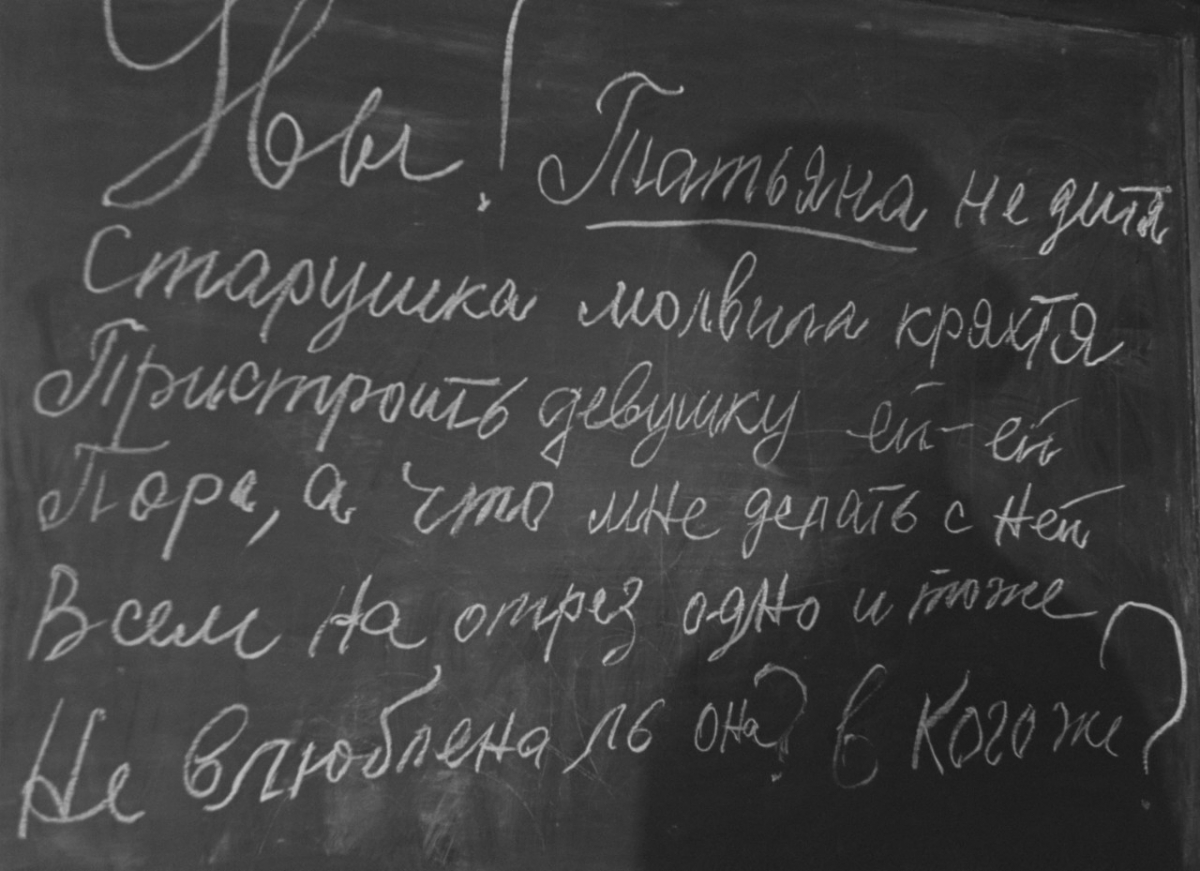 Увы! Татьяна не дитя
Старушка молвила кряхтя
Пристроить девушку ей-ей
Пора, а что мне делать с ней
Всем на отрез одно и тоже
Не влюблена ль она? в Кого же?